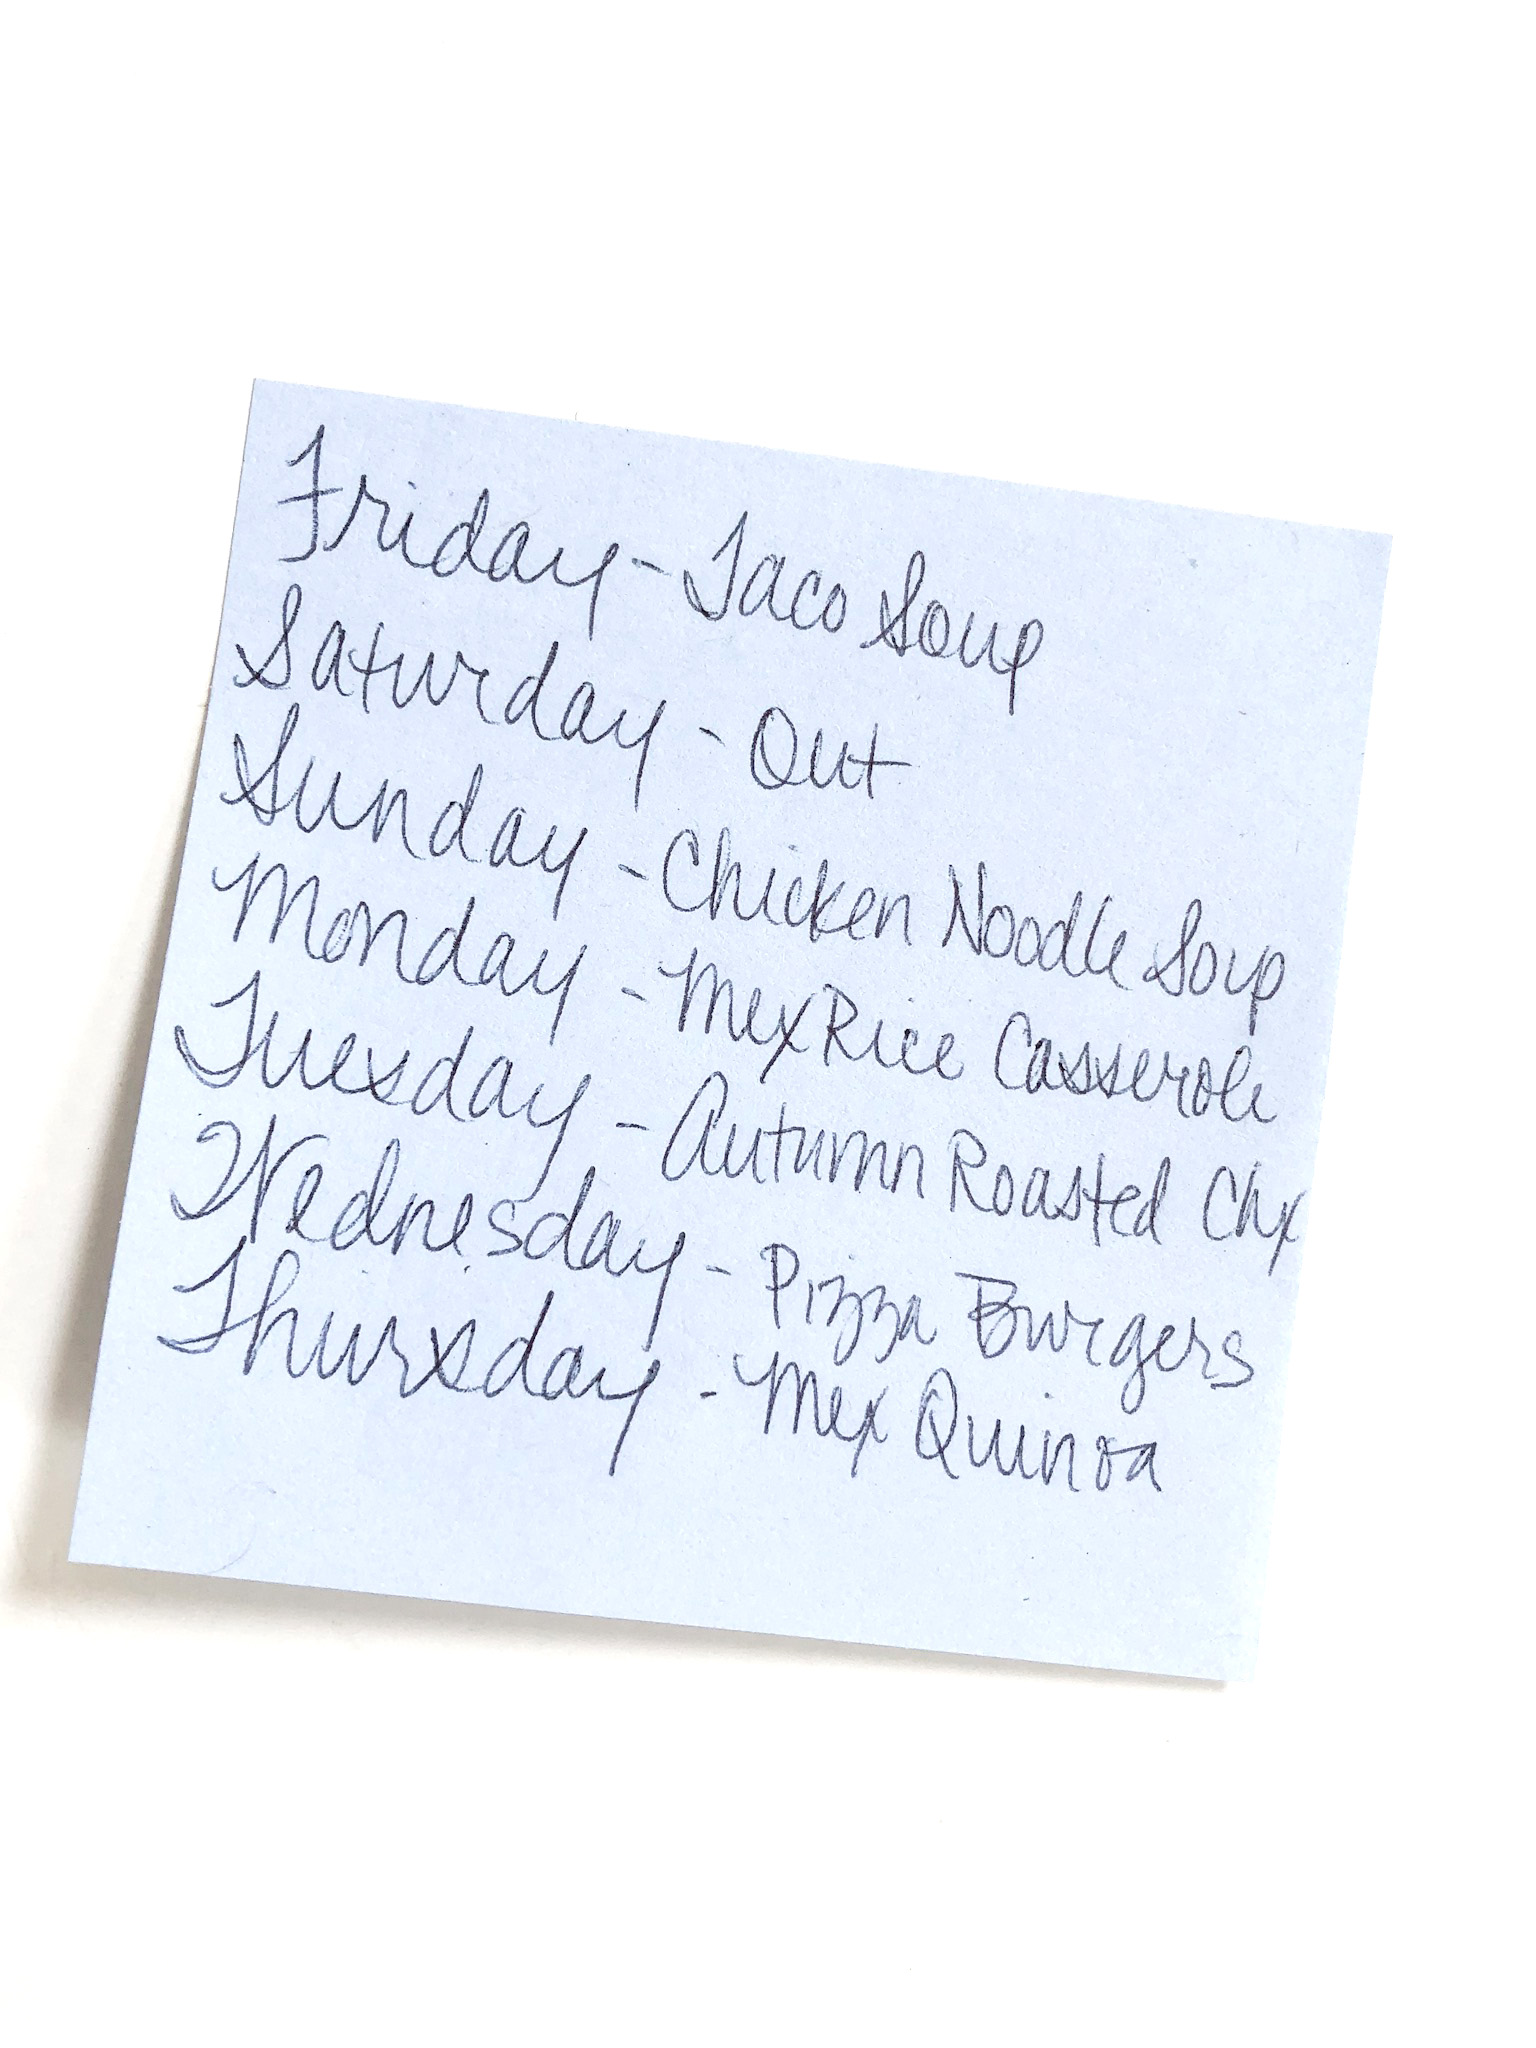 Friday - Taco Soup
Saturday - Out
Sunday - Chicken Noodle Soup
Monday - Mex Rice Casserole
Tuesday - Autumn Roasted Chx
Wednesday - Pizza Burgers
Thursday - Mex Quinoa